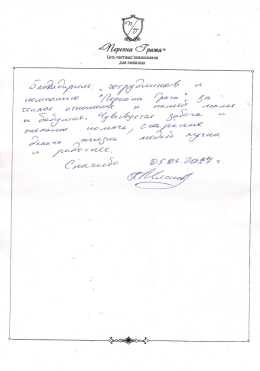 «Персона Грата»
Сеть частных пансионатов
для пожилых
Благодарим, сотрудников и
компанию "Персона Грата" за
теплое отношение к нашей маме
и бабушке. Чувствуется забота и
желание помочь, старание
делать жизнь людей лучше
и
Спасибо 05.04.2017г.